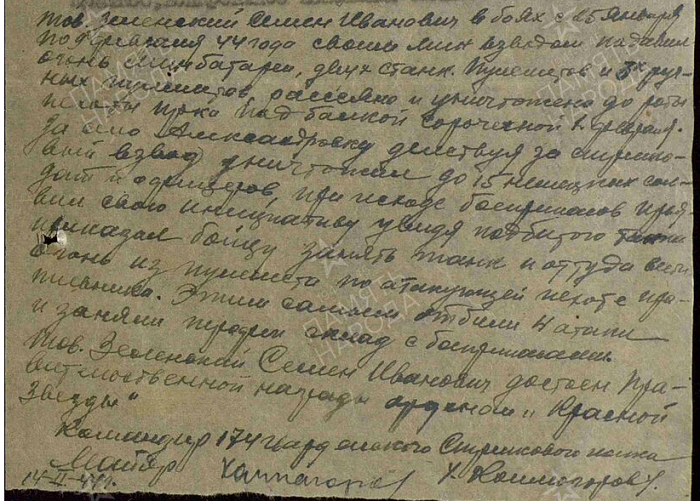 тов. Зеленский Семен Иванович в боях с 25 января
по февраля 44 года своим мин взводом подавил
огонь минбатареи, двух станк. пулеметов и 3х руч-
ных пулеметов, рассеяно и уничтожено до роты
пехоты пр-ка под балкой Сорочиной 1 февраля.
За село Александровку действуя за стрелко-
вый взвод уничтожил до 15 немецких сол-
дат и офицеров, при исходе боеприпасов проя-
вил свою инициативу увидя подбитого танка
приказал бойцу занять танк и оттуда вести
огонь из пулемета по атакующей пехоте про-
тивника. Этим самым отбили 4 атаки
и заняли трофеи склад с боеприпасами.
Тов. Зеленский Семен Иванович достоен Пра-
вительственной награды орденом „Красной
Звезды"
Командир 174 Гвардейского Стрелкового полка
Майор
14-II-44г.
ПАМЯТЬ НАРОДА